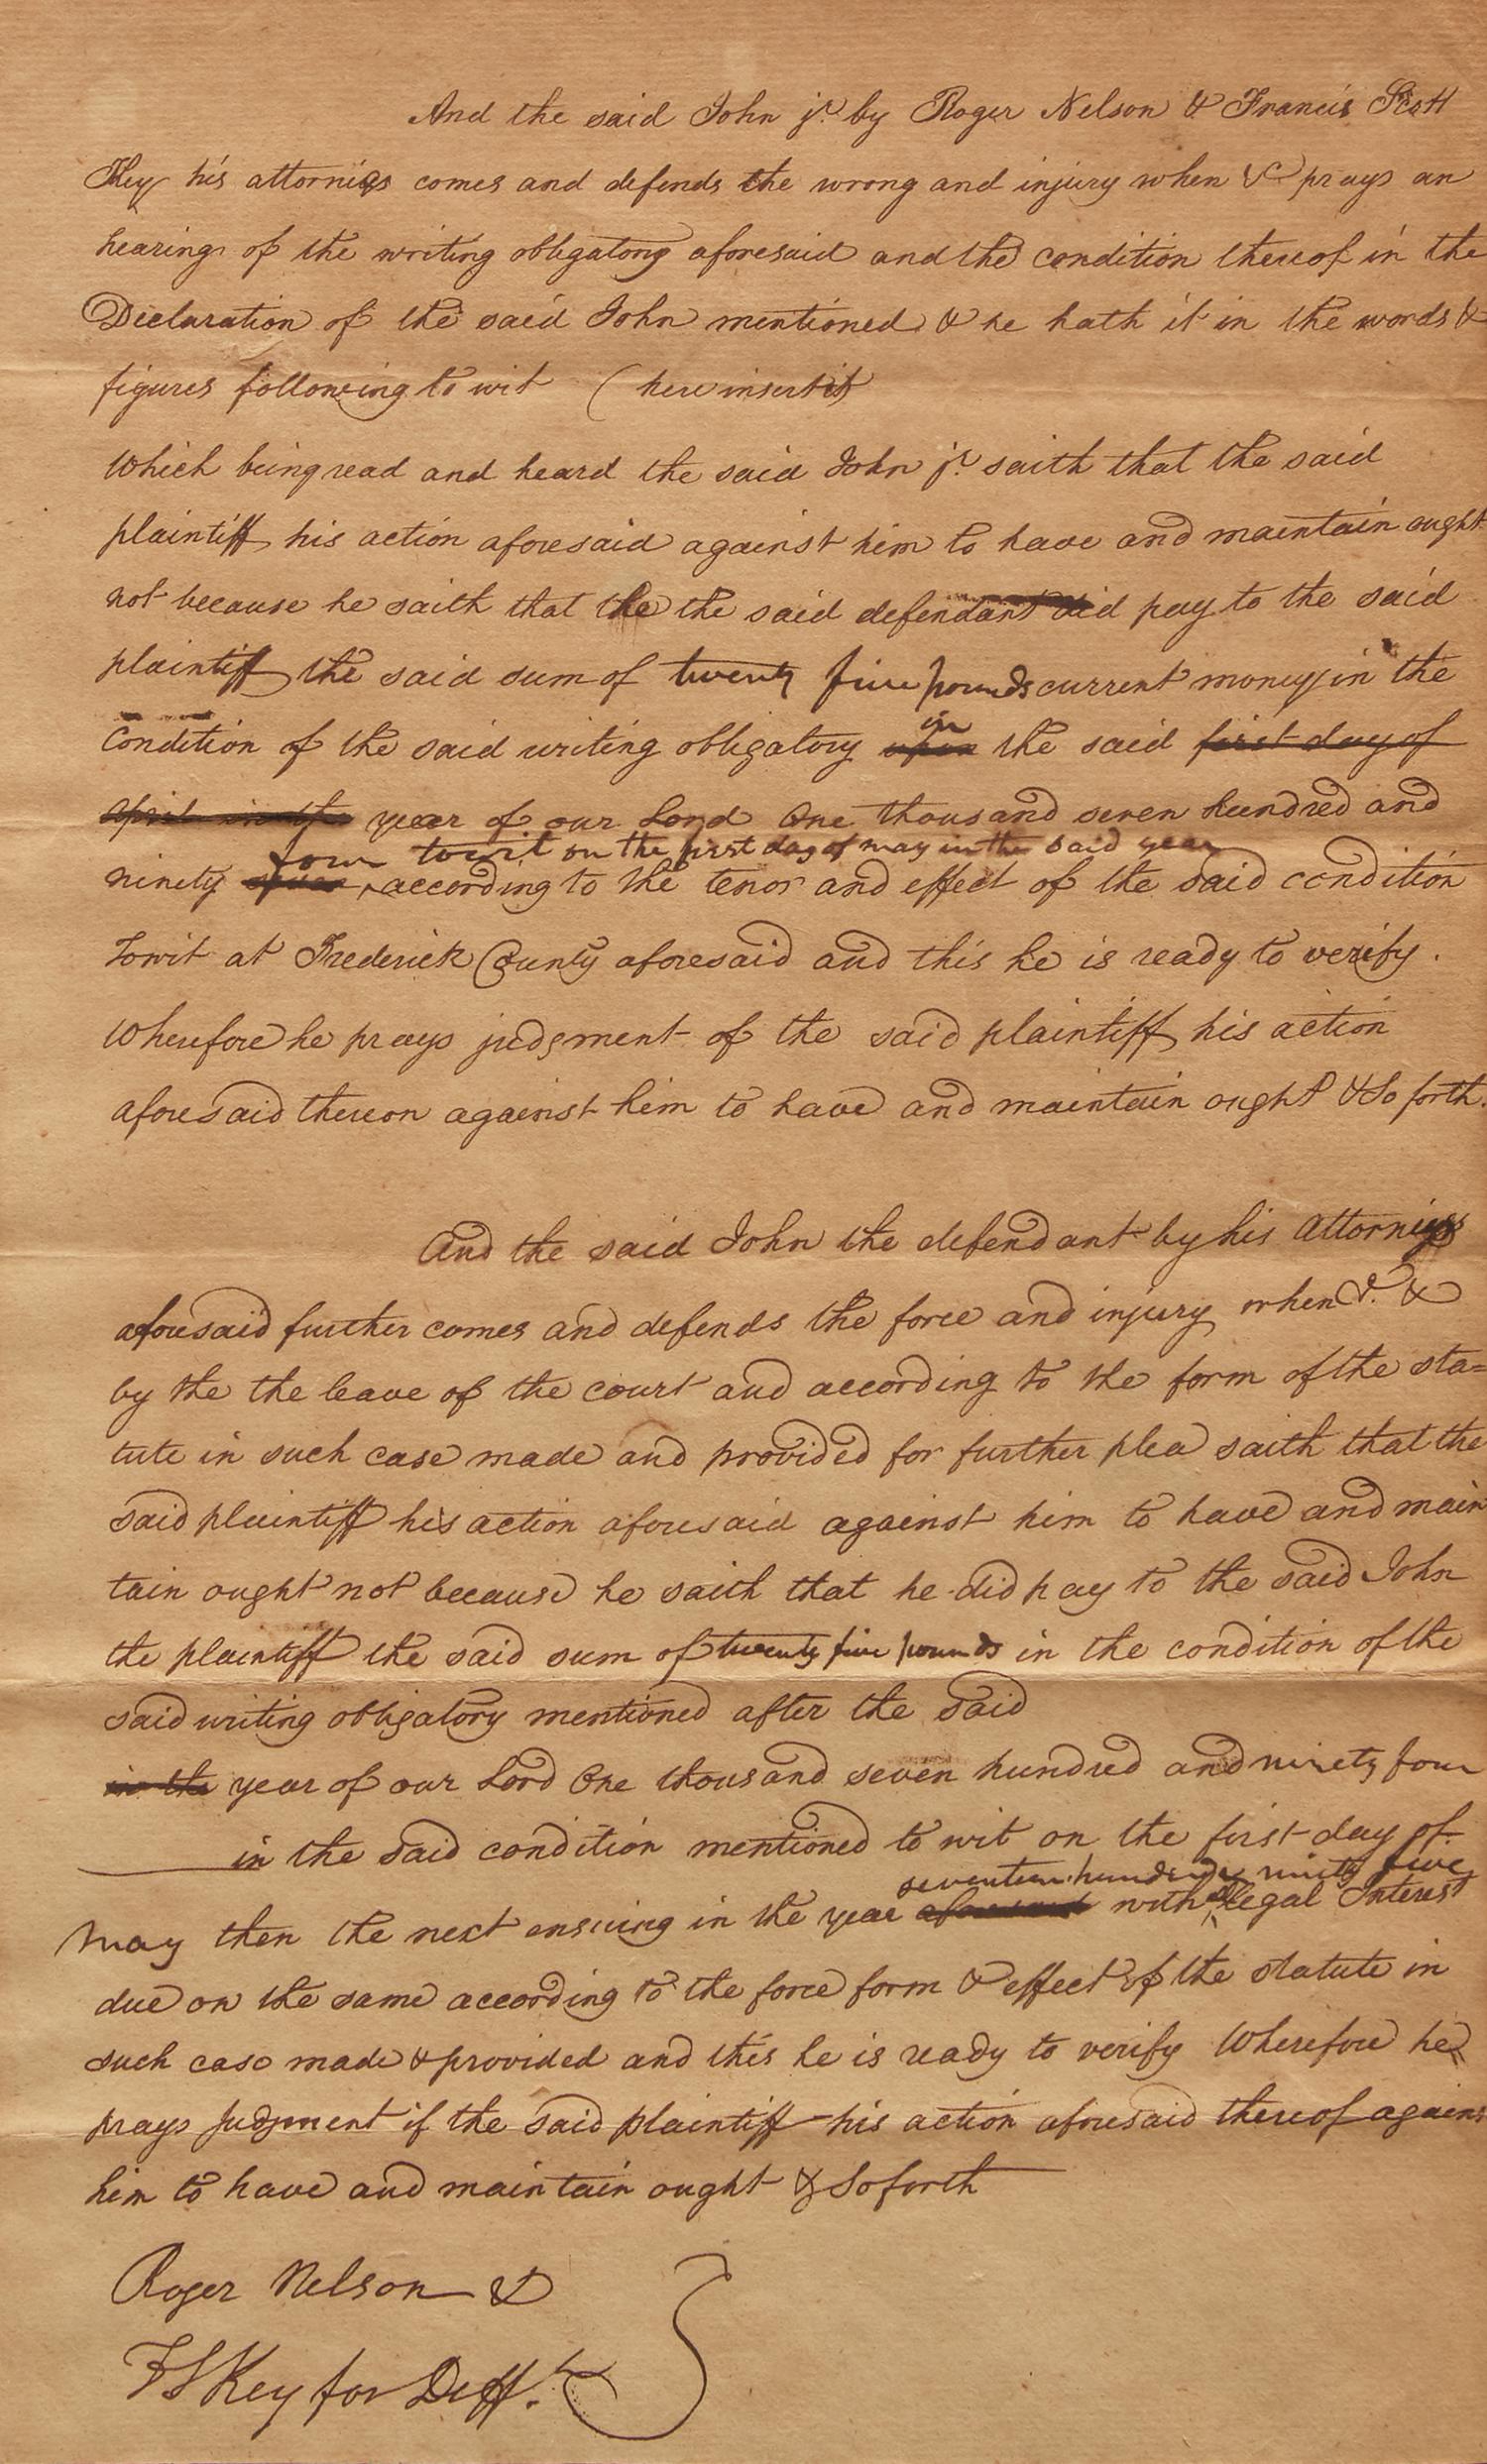 And the said John jr. by Roger Nelson & Francis Scott
Key his attornies comes and defends the wrong and injury when &c prays an
hearing of the writing obligatory aforesaid and the condition thereof in the
Declaration of the said John mentioned & he hath it in the words &
figures following to wit ( here insert it
Which being read and heard the said John jr. saith that the said
plaintiff his action aforesaid against him to have and maintain ought
not because he saith that the the said defendant did pay to the said
plaintiff the said sum of twenty five pounds current money in the
in
condition of the said writing obligatory upon the said first day of
April in the year of our Lord One thousand seven hundred and
four towit on the first day of may in the said year
ninety according to the tenor and effect of the said condition
Towit at Frederick County aforesaid and this he is ready to verify.
Wherefore he prays judgment of the said plaintiff his action
aforesaid thereon against him to have and maintain ought & So forth.
And the said John the defendant by his attornies
aforesaid further comes and defends the force and injury when &. &
by the the leave of the court and according to the form of the sta=
tute in such case made and provided for further plea saith that the
said plaintiff his action aforesaid against him to have and main
tain ought not because he saith that he did pay to the said John
the plaintiff the said sum of twenty five pounds in the condition of the
said writing obligatory mentioned after the said
in the year of our Lord One thousand seven hundred and ninety four
in the said condition mentioned to wit on the first day of
seventeen hundred & ninety five
May then the next ensuing in the year aforesaid with legal Interest
due on the same according to the force form & effect of the statute in
such case made & provided and this he is ready to verify Wherefore he
prays Judgment if the said plaintiff his action aforesaid thereof agains
him to have and maintain ought & So forth
Roger Nelson &
F S Key for Deft.